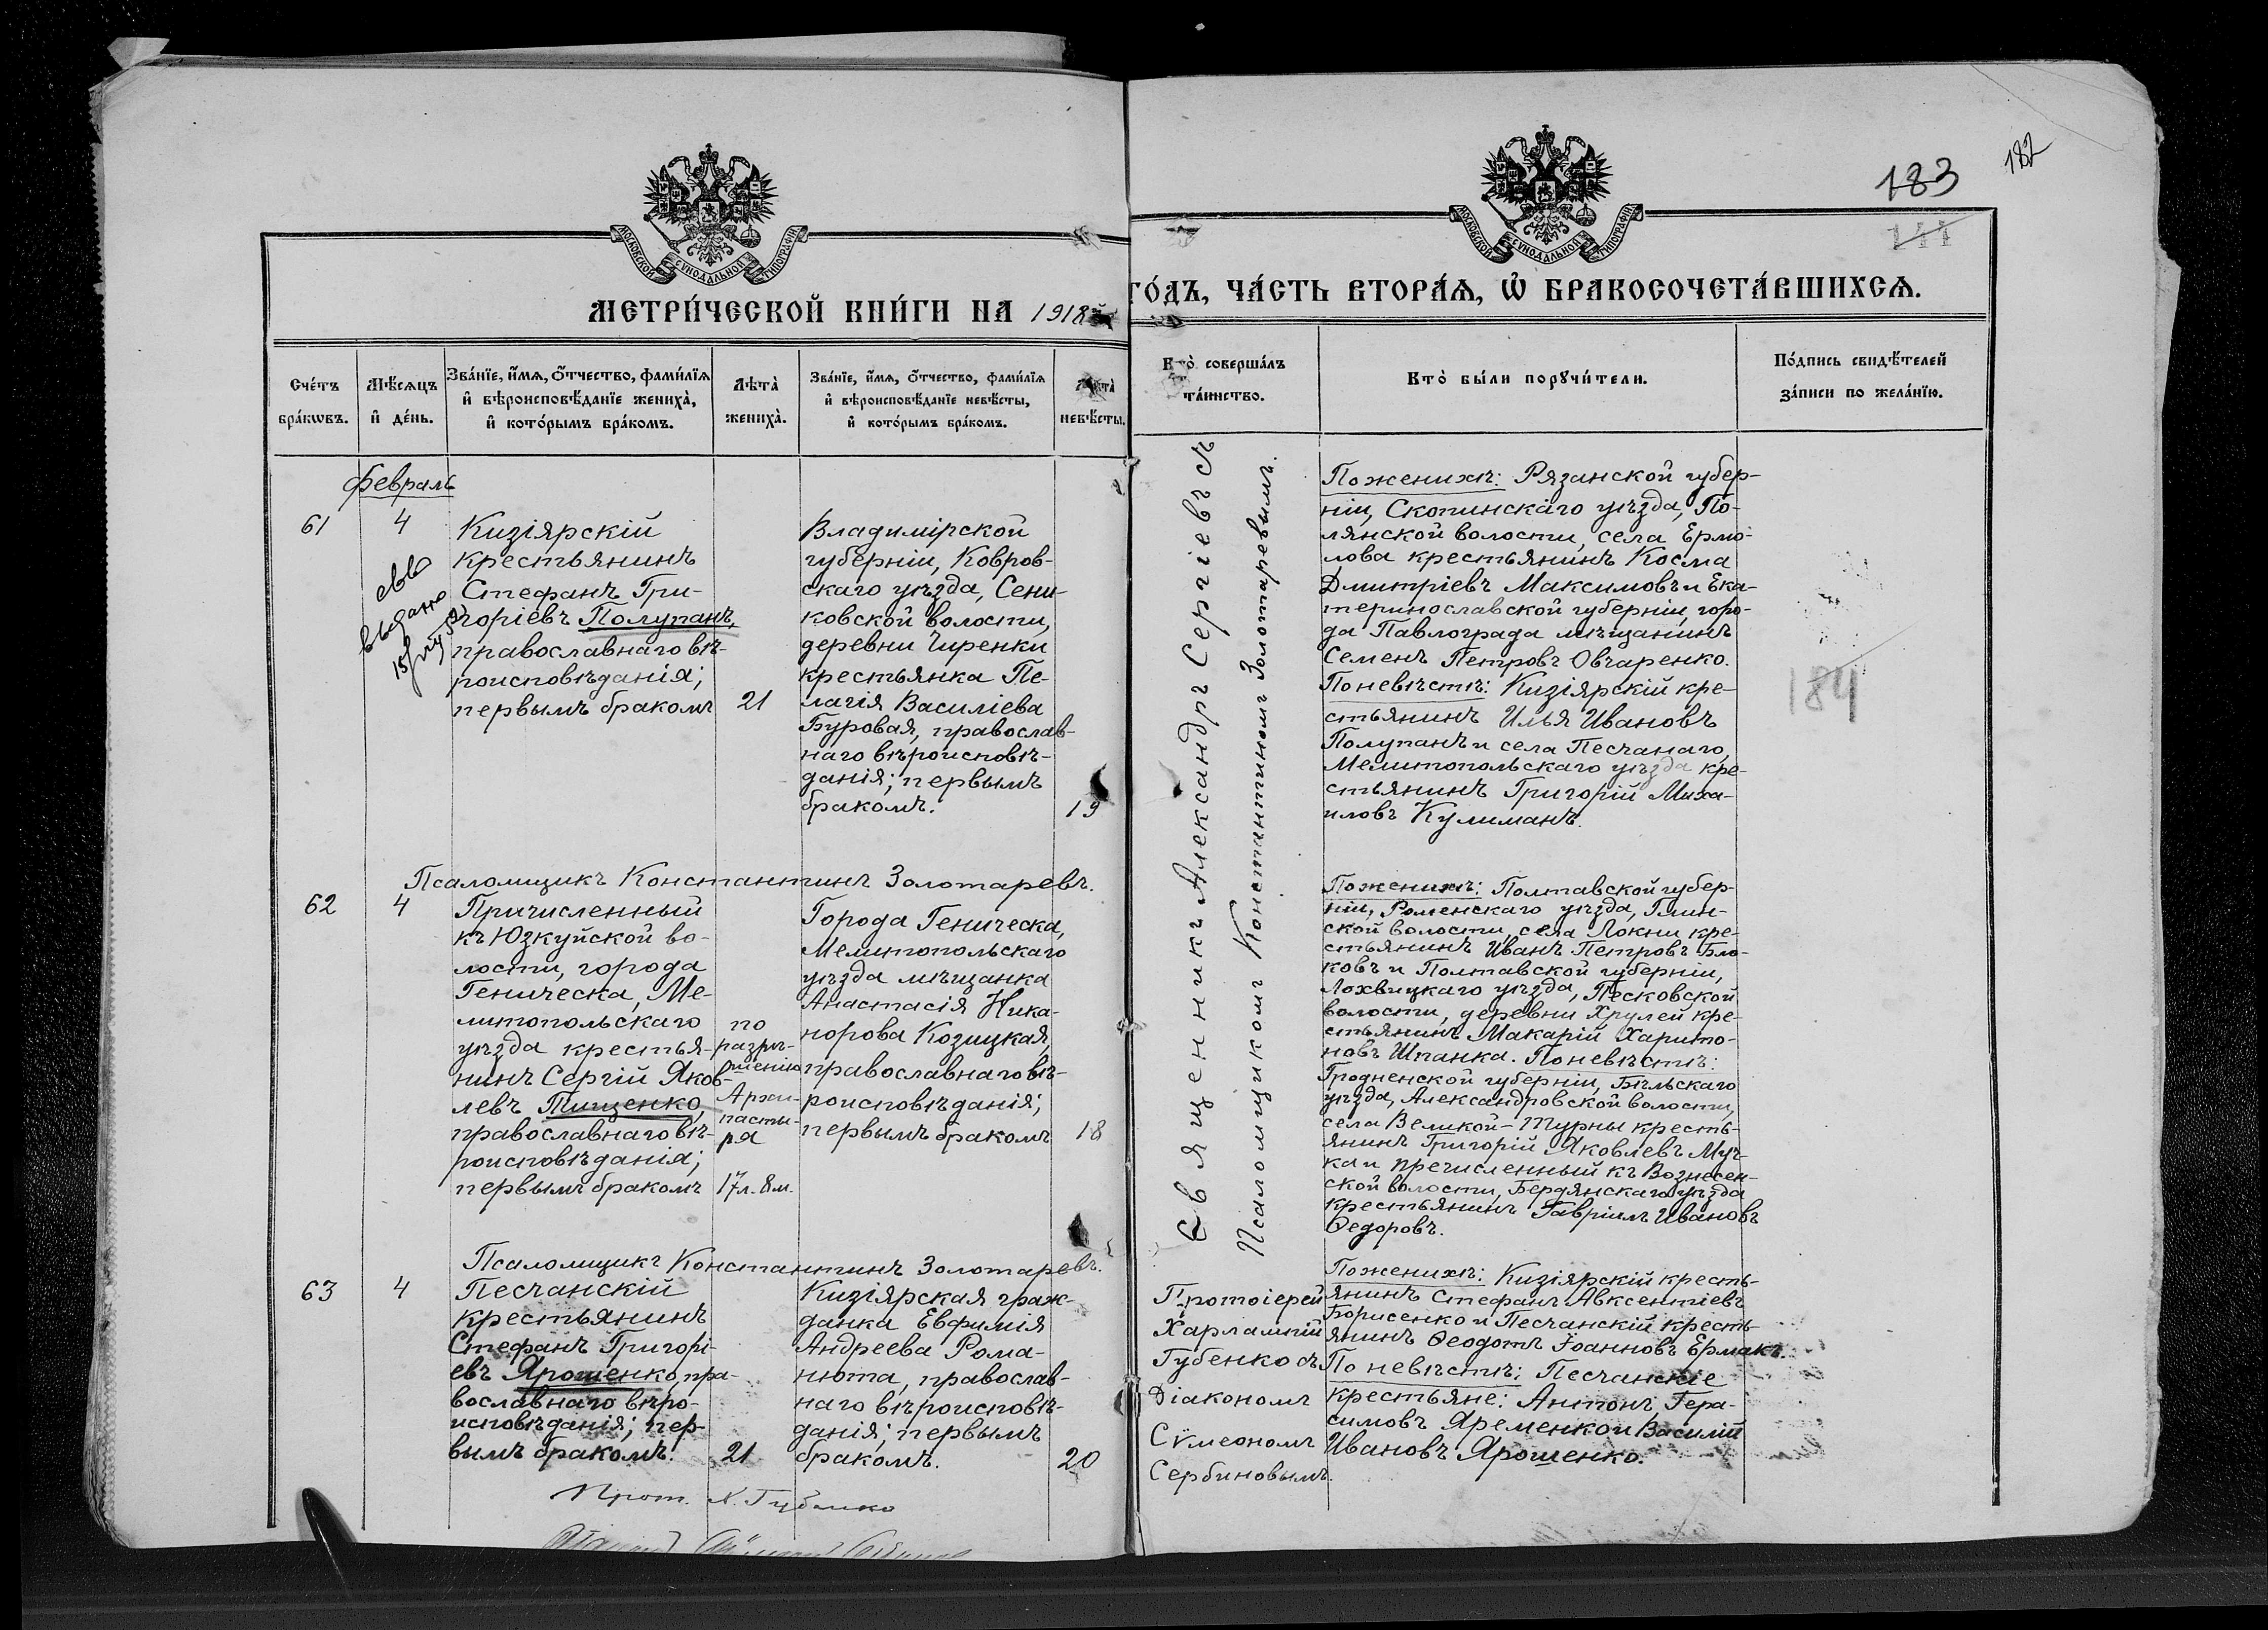 183
182
144
МОСКОВСКОЙ СѴНОДАЛЬНОЙ ТИПОГРАФІИ
МОСКОВСКОЙ СѴНОДАЛЬНОЙ ТИПОГРАФІИ
МЕТРИ́ЧЕСКОЙ КНИ́ГИ НА 1918й
ГО́ДЪ, ЧА́СТЬ ВТОРА́Ѧ, Ѡ҆ БРАКОСОЧЕТА́ВШИХСѦ.
Сче́тъ
бра́кѡвъ.
Мѣ́сѧцъ
и҆ де́нь.
Зва́нїе, и҆́мѧ, ѻ҆́тчество, фами́лїѧ
и҆ вѣроисповѣ́данїе жениха̀,
и҆ кото́рымъ бра́комъ.
Лѣ́та̀
жениха̀.
Зва́нїе, и҆́мѧ, ѻ҆́тчество, фами́лїѧ
и҆ вѣроисповѣ́данїе невѣ́сты,
и҆ кото́рымъ бра́комъ.
Лѣ́та̀
невѣ́сты.
Кто̀ соверша́лъ
та́инство.
Кто̀ бы́ли порꙋчи́тели.
По́дпись свидѣ́телей
за́писи по жела́нїю.
Февраль
61
4
выдано
Кизіярскій
крестьянинъ
Стефанъ Гри-
горіевъ Полупанъ,
православнаго вѣ-
роисповѣданія;
первымъ бракомъ
21
Владимірской
губерніи, Ковров-
скаго уѣзда, Сени-
ковской волости,
деревни Чиренки
крестьянка Пе-
лагія Василіева
Буровая, православ-
наго вѣроисповѣ-
данія; первымъ
бракомъ.
19
Священникъ Александръ Сергіевъ съ
Псаломщикомъ Константиномъ Золотаревымъ.
По женихѣ: Рязанской губер-
ніи, Скопинскаго уѣзда, По-
лянской волости, села Ермо-
лова крестьянинъ Косма
Дмитріевъ Максимовъ и Ека-
теринославской губерніи, горо-
да Павлограда мѣщанинъ
Семенъ Петровъ Овчаренко.
По невѣстѣ: Кизіярскій кре-
стьянинъ Илья Ивановъ
Полупанъ и села Песчанаго,
Мелитопольскаго уѣзда кре-
стьянинъ Григорій Миха-
иловъ Кулиманъ.
184
Псаломщикъ Константинъ Золотаревъ.
62
4
Причисленный
къ Юзкуйской во-
лости, города
Геническа, Ме-
литопольскаго
уѣзда крестья-
нинъ Сергій Яков-
левъ Тищенко,
православнаго вѣ-
роисповѣданія;
первымъ бракомъ
по
разрѣ-
шенію
Архи-
пасты-
ря
17 л. 8 м.
Города Геническа,
Мелитопольскаго
уѣзда мѣщанка
Анастасія Ника-
норова Козицкая,
православнаго вѣ-
роисповѣданія;
первымъ бракомъ
18
По женихѣ: Полтавской губер-
ніи, Роменскаго уѣзда, Глин-
ской волости, села Локни кре-
стьянинъ Иванъ Петровъ Бло-
ковъ и Полтавской губерніи,
Лохвицкаго уѣзда, Песковской
волости, деревни Хрулей кре-
стьянинъ Макарій Харито-
новъ Шпанка. По невѣстѣ:
Гродненской губерніи, Бѣльскаго
уѣзда, Александровской волости,
села Великой-Турны кресть-
янинъ Григорій Яковлевъ Муч-
ка и пречисленный къ Вознесен-
ской волости, Бердянскаго уѣзда
крестьянинъ Гавріилъ Ивановъ
Ѳедоровъ.
Псаломщикъ Константинъ Золотаревъ.
63
4
Песчанскій
крестьянинъ
Стефанъ Григорі-
евъ Ярошенко, пра-
вославнаго вѣро-
исповѣданія; пер-
вымъ бракомъ.
21
Кизіярская граж-
данка Евфимія
Андреева Рома-
нюта, православ-
наго вѣроисповѣ-
данія; первымъ
бракомъ.
20
Протоіерей
Харлампій
Губенко съ
Діакономъ
Сѵмеономъ
Сербиновымъ.
По женихѣ: Кизіярскій кресть-
янинъ Стефанъ Авксентіевъ
Борисенко и Песчанскій кресть-
янинъ Ѳеодотъ Іоанновъ Ермакъ.
По невѣстѣ: Песчанскіе
крестьяне: Антонъ Гера-
симовъ Яременко и Василій
Ивановъ Ярошенко.
Прот. Х. Губенко